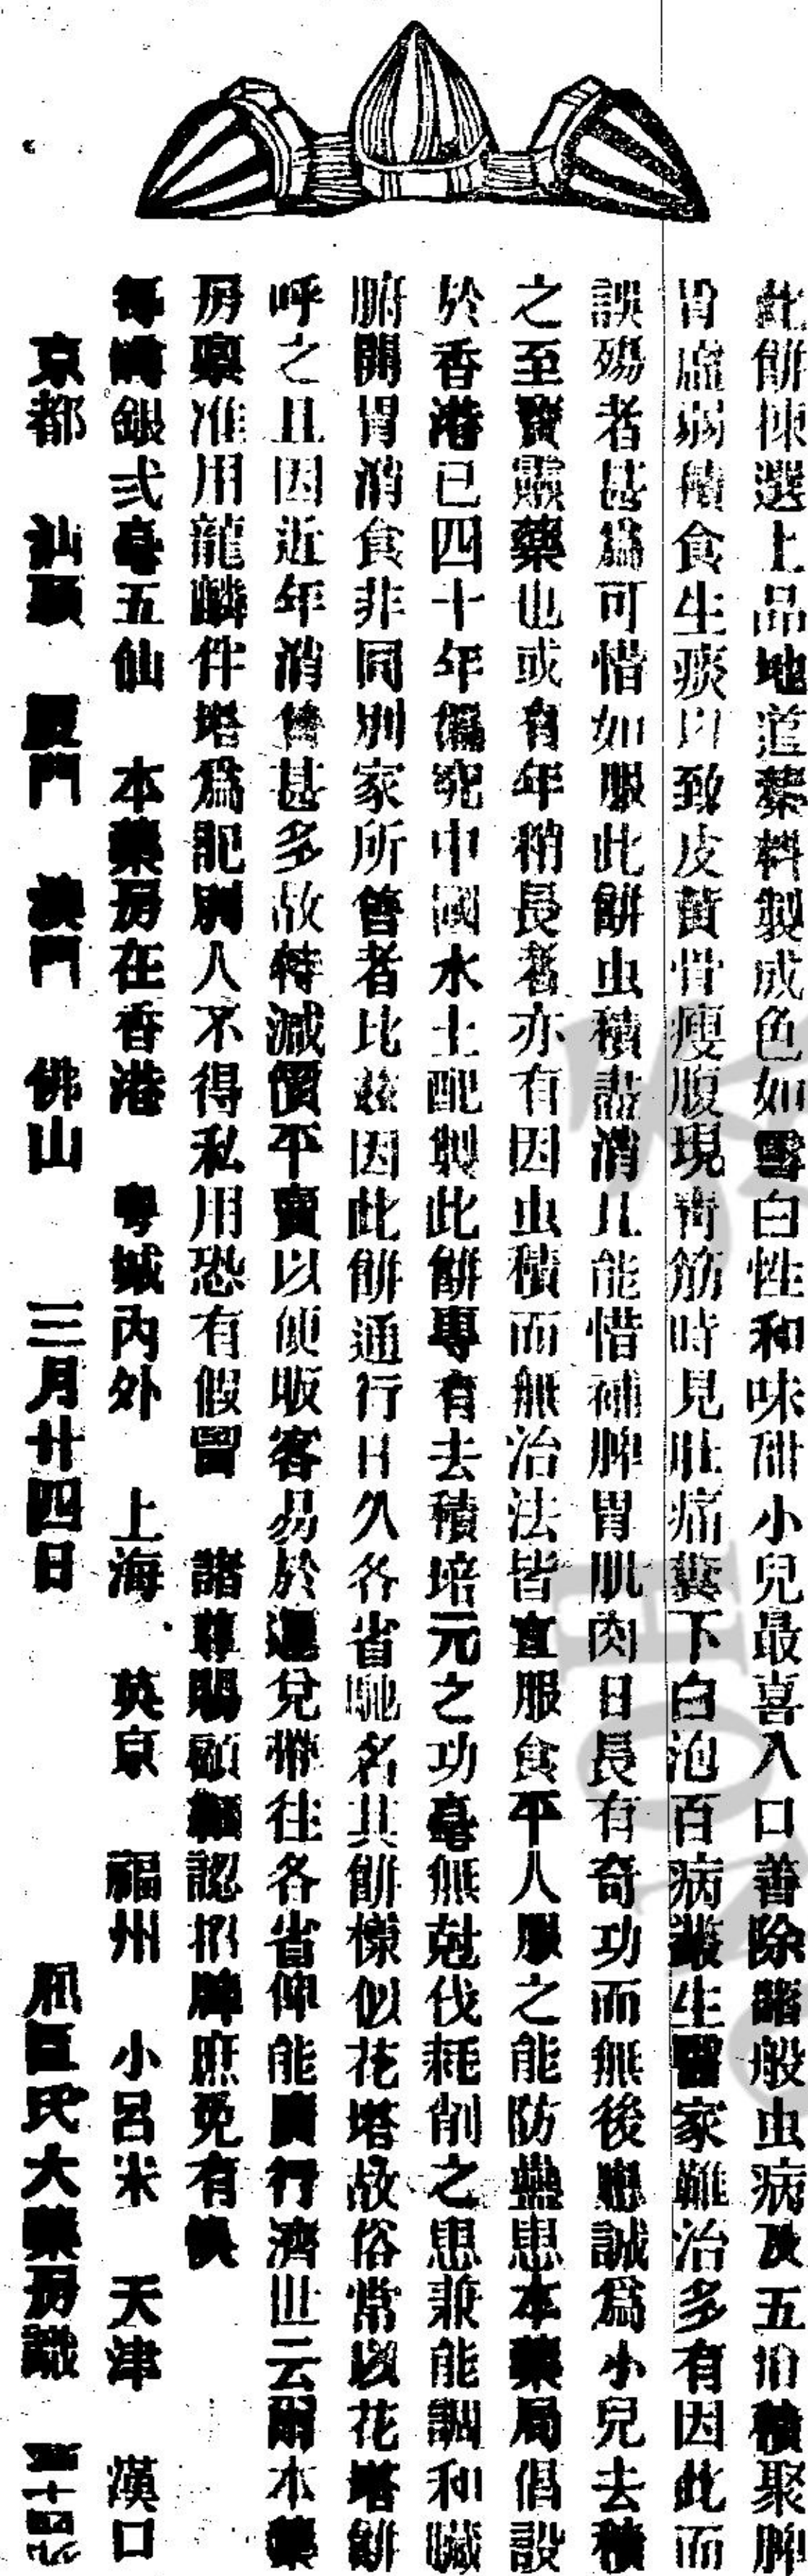 此餅揀選上品地道藥料製成色如雪白性和味甜小兒最喜入口善除諸般虫病及五疳積聚脾
胃虛弱積食生痰以致皮黃骨瘦腹現青筋時見肚痛糞下白泡百病叢生醫家難治多有因此而
誤殤者甚爲可惜如服此餅虫積盡消且能惜補脾胃肌肉日長有奇功而無後患誠爲小兒去積
之至寶靈藥也或有年稍長者亦有因虫積而無治法皆宜服食平人服之能防蠱患本藥局倡設
於香港已四十年徧究中國水土配製此餅專有去積培元之功毫無尅伐耗削之患兼能調和臟
腑開胃消食非同別家所售者比茲因此餅通行日久各省馳名其餅樣似花塔故俗常以花塔餅
呼之且因近年消售甚多故特減價平賣以便販客易於運兌帶往各省俾能廣行濟世云爾本藥
房稟准用龍麟伴塔爲記別人不得私用恐有假冒 諸尊賜顧賴認招牌庶免有悞
每樽銀弍毫五仙 本藥房在香港 粵城內外 上海 英京 福州 小呂宋 天津 漢口
京都 汕頭 厦門 澳門 佛山 三月廿四日 屈臣氏大藥房識